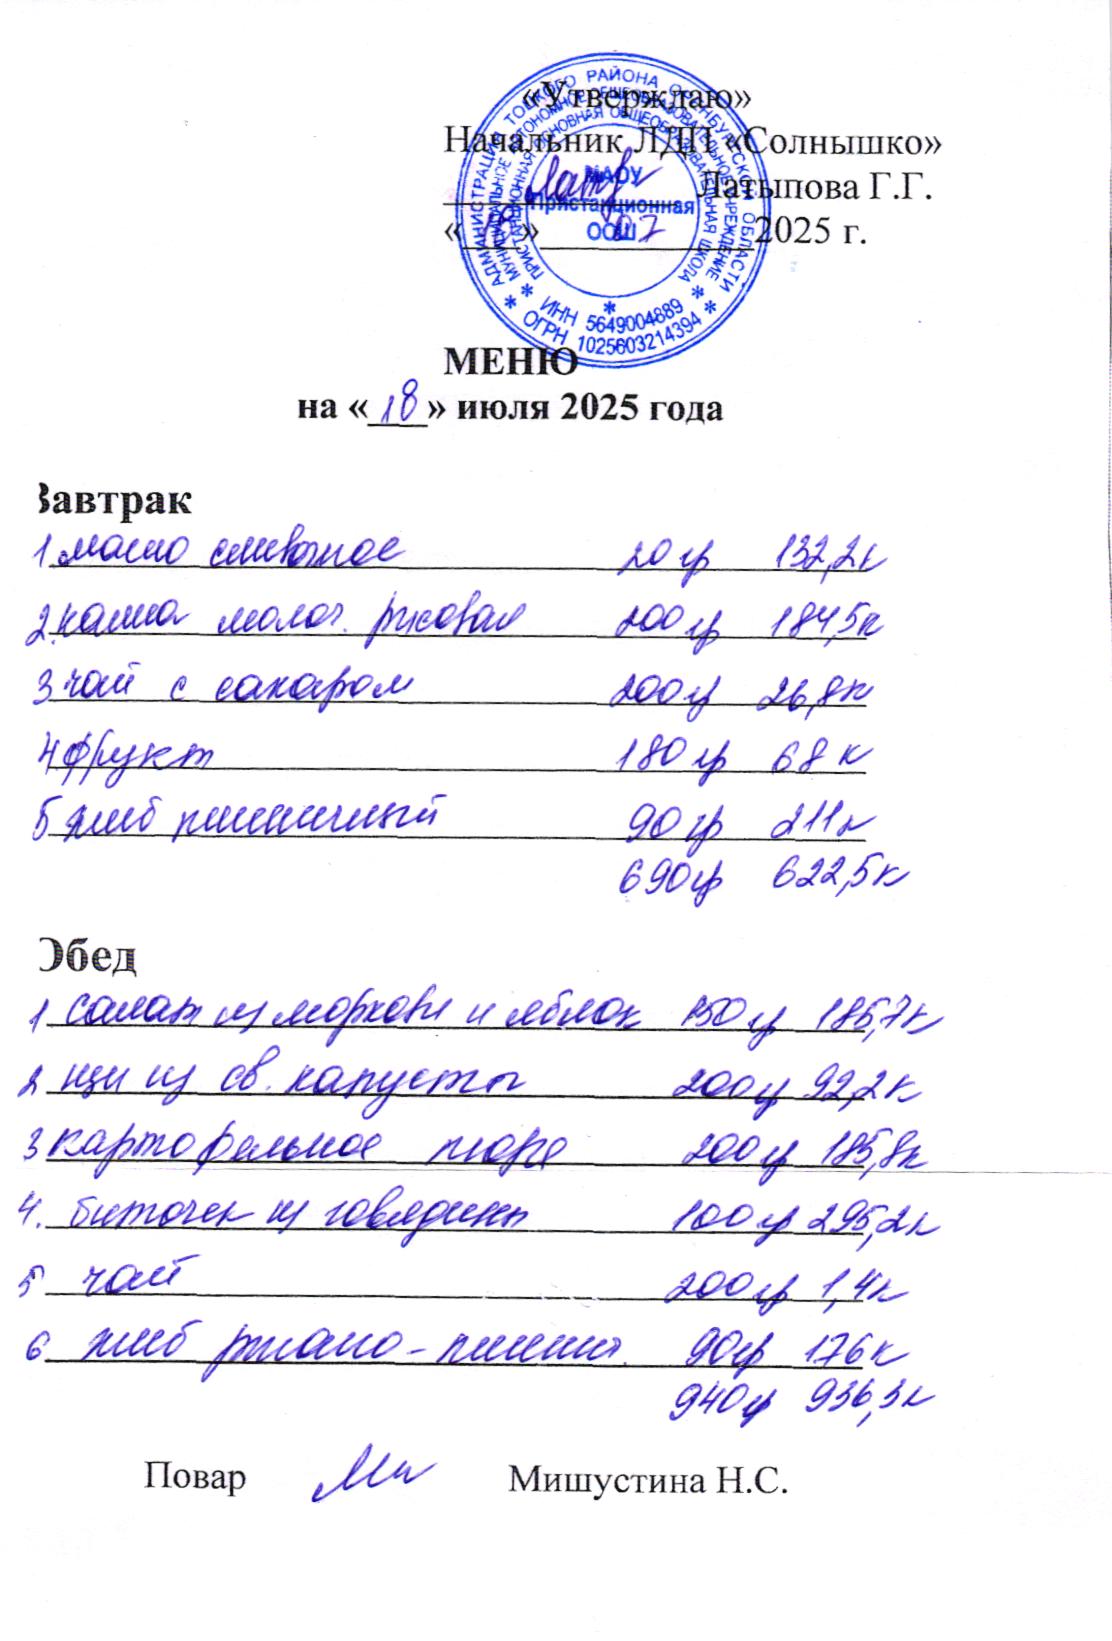 «Утверждаю»
Начальник ЛДП «Солнышко»
Латыпова Г.Г.
«18» 07 2025 г.
АДМИНИСТРАЦИЯ ТОЦКОГО РАЙОНА ОРЕНБУРГСКОЙ ОБЛАСТИ
МУНИЦИПАЛЬНОЕ АВТОНОМНОЕ ОБЩЕОБРАЗОВАТЕЛЬНОЕ УЧРЕЖДЕНИЕ
ПРИСТАНЦИОННАЯ ОСНОВНАЯ ОБЩЕОБРАЗОВАТЕЛЬНАЯ ШКОЛА
МАОУ
Пристанционная
ООШ
ИНН 5649004889
ОГРН 1025603214394
МЕНЮ
на «18» июля 2025 года
Завтрак
1 масло сливочное 20 гр 132,2к
2. каша молоч. рисовая 200 гр 184,5к
3 чай с сахаром 200 гр 26,8к
4 фрукт 180 гр 68 к
5 хлеб пшеничный 90 гр 211к
690 гр 622,5к
Обед
1 салат из моркови и яблок 150 гр 185,7к
2 щи из св. капусты 200 гр 92,2к
3 картофельное пюре 200 гр 185,8к
4. биточек из говядины 100 гр 295,2к
5 чай 200 гр 1,4к
6 хлеб ржано-пшенич. 90 гр 176к
940 гр 936,3к
Повар Мишустина Н.С.